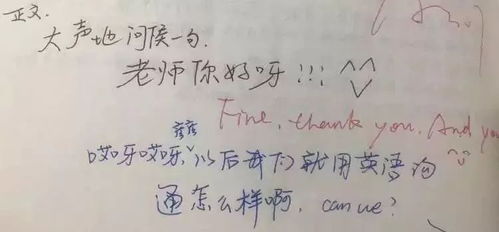 正文.
大声地问候一句.
老师你好呀!!! ^^
Fine, thank you. And you
哎呀哎呀，以后我们就用英语沟
通怎么样啊. can we?